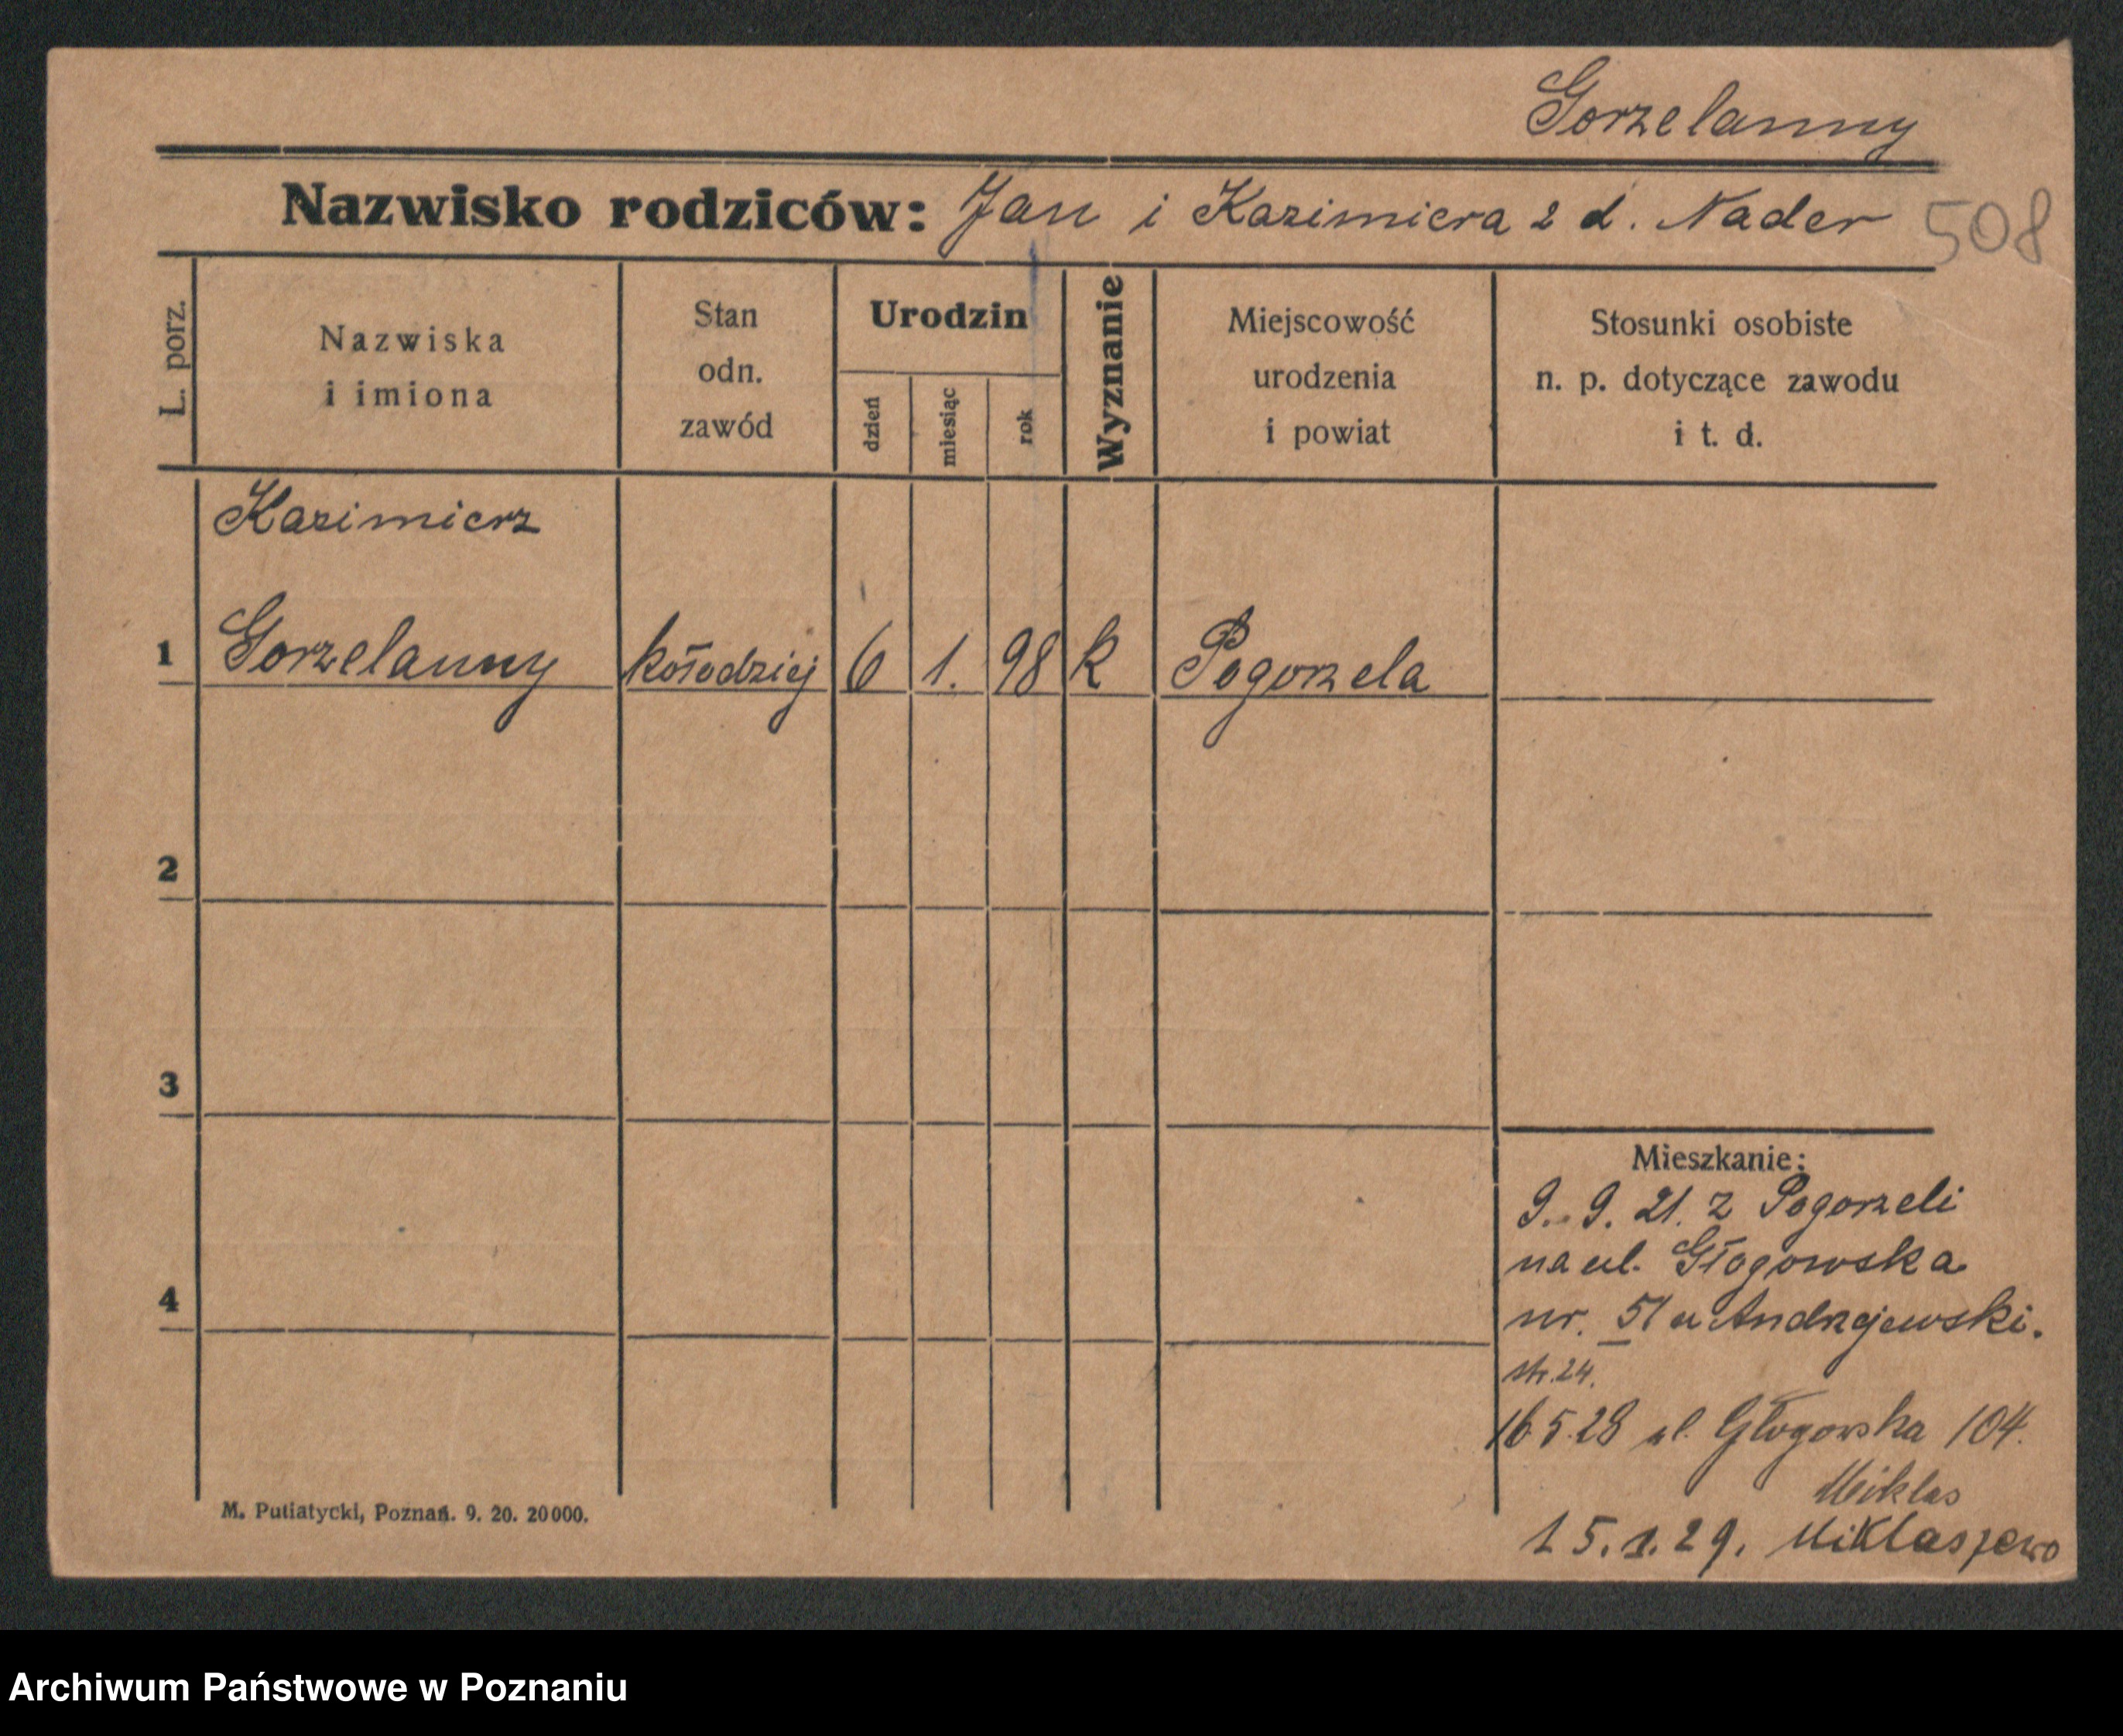 Gorzelanny
Nazwisko rodziców: Jan i Kazimiera z d. Nader
508
L. porz.
Nazwiska
i imiona
Stan
odn.
zawód
Urodzin
dzień
miesiąc
rok
Wyznanie
Miejscowość
urodzenia
i powiat
Stosunki osobiste
n. p. dotyczące zawodu
i t. d.
Kazimierz
1 Gorzelanny kołodziej 6 1. 98 k Pogorzela
2
3
4
Mieszkanie:
9. 9. 21. z Pogorzeli
na ul. Głogowska
nr. 51 u Andrzejewski.
str. 24.
16 5 28 ul. Głogowska 104.
Miklas
15.1.29. Miklaszewo
M. Putiatycki, Poznań. 9. 20. 20000.
Archiwum Państwowe w Poznaniu